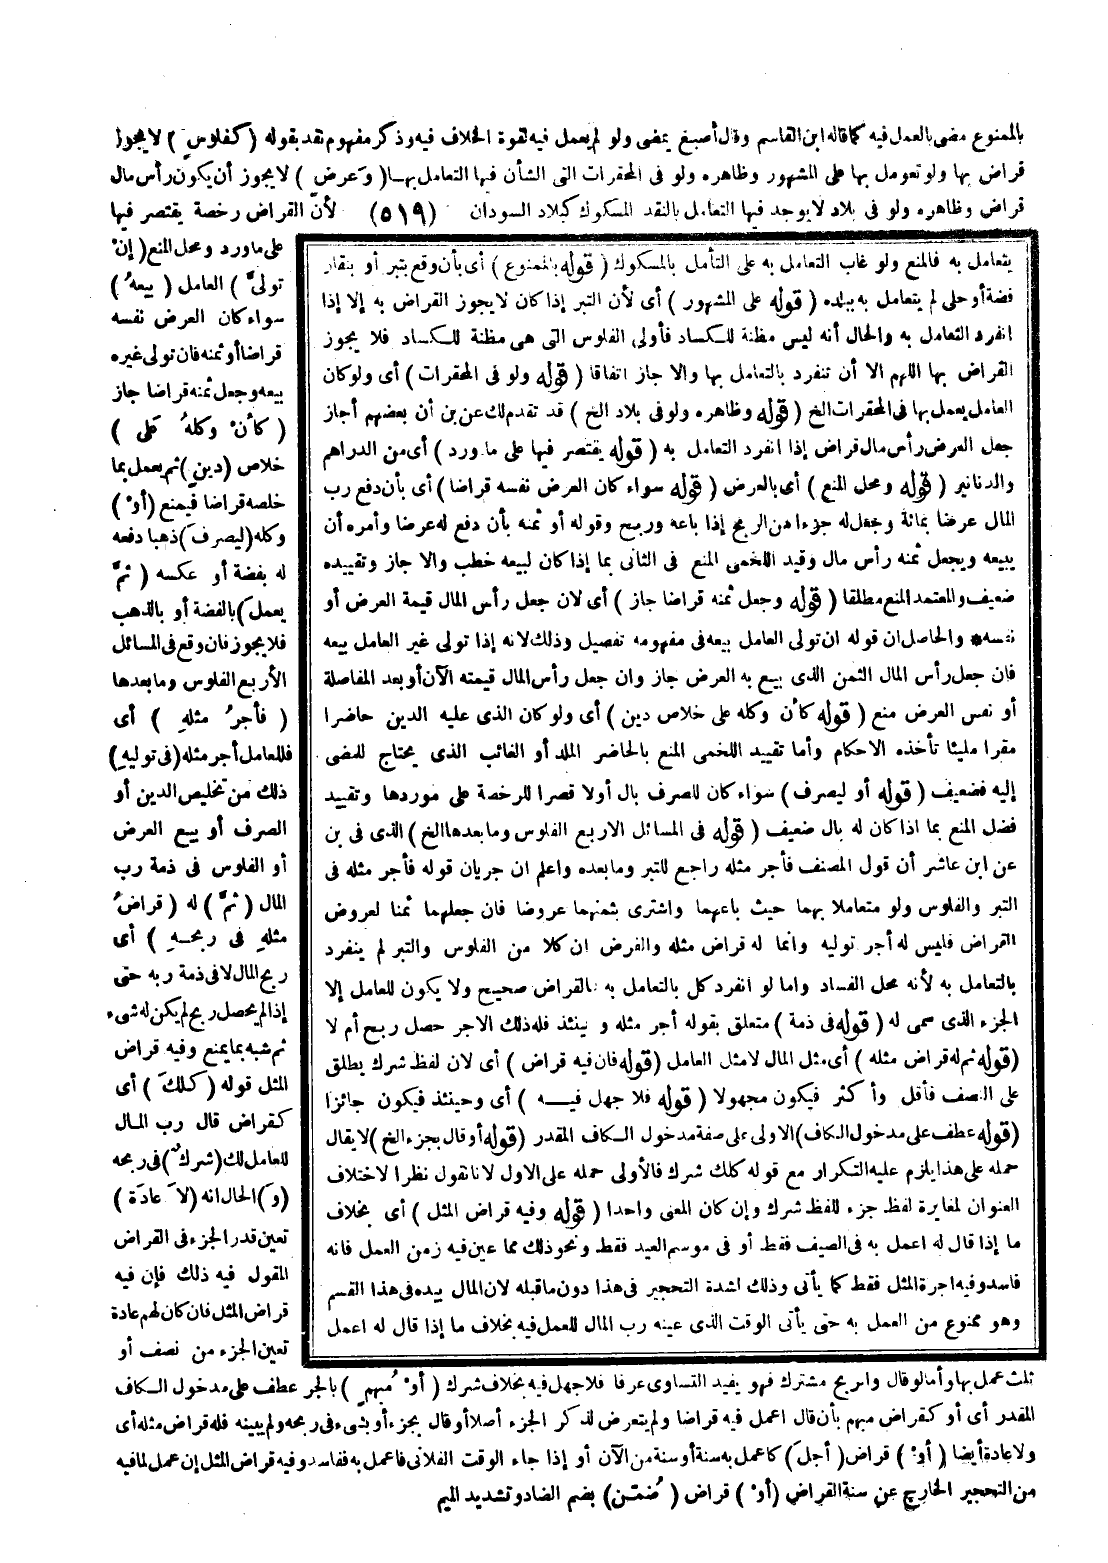 بالممنوع مضى بالعمل فيه كما قاله ابن القاسم وقال أصبغ يمضى ولو لم يعمل فيه لقوة الخلاف فيه وذكر مفهوم نقد بقوله (كفلوس) لا يجوز
قراض بها ولو تعومل بها على المشهور وظاهره ولو فى المحقرات التى الشأن فيها التعامل بها (وعرض) لا يجوز أن يكون رأس مال
قراض وظاهره ولو فى بلاد لا يوجد فيها التعامل بالنقد المسكوك كبلاد السودان (٥١٩) لأن القراض رخصة يقتصر فيها
على ما ورد ومحل المنع (إن
تولى) العامل (بيعه)
سواء كان العرض نفسه
قراضا أو ثمنه فان تولى غيره
بيعه وجعل ثمنه قراضا جاز
(كأن وكله على)
خلاص (دين) ثم يعمل بما
خلصه قراضا فيمنع (أو)
وكله (ليصرف) ذهبا دفعه
له بفضة أو عكسه (ثم
يعمل) بالفضة أو بالذهب
فلا يجوز فان وقع فى المسائل
الأربع الفلوس وما بعدها
(فأجر مثله) أى
فللعامل أجر مثله (فى توليه)
ذلك من تخليص الدين أو
الصرف أو بيع العرض
أو الفلوس فى ذمة رب
المال (ثم) له (قراض
مثله فى ربحه) أى
ربح المال لا فى ذمة ربه حتى
إذا لم يحصل ربح لم يكن له شىء
ثم شبه بما يمنع وفيه قراض
المثل قوله (كلك) أى
كقراض قال رب المال
للعامل لك (شرك) فى ربحه
(و) الحال انه (لا عادة)
تعين قدر الجزء فى القراض
المقول فيه ذلك فإن فيه
قراض المثل فان كان لهم عادة
تعين الجزء من نصف أو
يتعامل به فالمنع ولو غاب التعامل به على التأمل بالمسكوك (قوله بالممنوع) أى بأن وقع بتبر أو بنقار
فضة أو حلى لم يتعامل به ببلده (قوله على المشهور) أى لأن التبر إذا كان لا يجوز القراض به إلا إذا
انفرد التعامل به والحال أنه ليس مظنة للكساد فأولى الفلوس التى هى مظنة للكساد فلا يجوز
القراض بها اللهم الا أن تنفرد بالتعامل بها والا جاز اتفاقا (قوله ولو فى المحقرات) أى ولو كان
العامل يعمل بها فى المحقرات الخ (قوله وظاهره ولو فى بلاد الخ) قد تقدم لك عن بن أن بعضهم أجاز
جعل العرض رأس مال قراض إذا انفرد التعامل به (قوله يقتصر فيها على ما ورد) أى من الدراهم
والدنانير (قوله ومحل المنع) أى بالعرض (قوله سواء كان العرض نفسه قراضا) أى بأن دفع رب
المال عرضا بمائة وجعل له جزءا من الربح إذا باعه وربح وقوله أو ثمنه بأن دفع له عرضا وأمره أن
يبيعه ويجعل ثمنه رأس مال وقيد اللخمى المنع فى الثانى بما إذا كان لبيعه خطب والا جاز وتقييده
ضعيف والمعتمد المنع مطلقا (قوله وجعل ثمنه قراضا جاز) أى لان جعل رأس المال قيمة العرض أو
نفسه * والحاصل ان قوله ان تولى العامل بيعه فى مفهومه تفصيل وذلك لانه إذا تولى غير العامل بيعه
فان جعل رأس المال الثمن الذى بيع به العرض جاز وان جعل رأس المال قيمته الآن أو بعد المفاصلة
أو نفس العرض منع (قوله كأن وكله على خلاص دين) أى ولو كان الذى عليه الدين حاضرا
مقرا مليئا تأخذه الاحكام وأما تقييد اللخمى المنع بالحاضر الملد أو الغائب الذى يحتاج للمضى
إليه فضعيف (قوله أو ليصرف) سواء كان للصرف بال أولا قصرا للرخصة على موردها وتقييد
فضل المنع بما اذا كان له بال ضعيف (قوله فى المسائل الاربع الفلوس وما بعدها الخ) الذى فى بن
عن ابن عاشر أن قول المصنف فأجر مثله راجع للتبر وما بعده واعلم ان جريان قوله فأجر مثله فى
التبر والفلوس ولو متعاملا بهما حيث باعهما واشترى بثمنهما عروضا فان جعلهما ثمنا لعروض
القراض فليس له أجر توليه وانما له قراض مثله والفرض ان كلا من الفلوس والتبر لم ينفرد
بالتعامل به لأنه محل الفساد واما لو انفرد كل بالتعامل به فالقراض صحيح ولا يكون للعامل إلا
الجزء الذى سمى له (قوله فى ذمة) متعلق بقوله أجر مثله وحينئذ فله ذلك الاجر حصل ربح أم لا
(قوله ثم له قراض مثله) أى مثل المال لا مثل العامل (قوله فان فيه قراض) أى لان لفظ شرك يطلق
على النصف فأقل وأكثر فيكون مجهولا (قوله فلا جهل فيه) أى وحينئذ فيكون جائزا
(قوله عطف على مدخول الكاف) الاولى على صفة مدخول الكاف المقدر (قوله أو قال بجزء الخ) لا يقال
حمله على هذا يلزم عليه التكرار مع قوله كلك شرك فالأولى حمله على الاول لانا نقول نظرا لاختلاف
العنوان لمغايرة لفظ جزء للفظ شرك وإن كان المعنى واحدا (قوله وفيه قراض المثل) أى بخلاف
ما إذا قال له اعمل به فى الصيف فقط أو فى موسم العيد فقط ونحو ذلك مما عين فيه زمن العمل فانه
فاسد وفيه اجرة المثل فقط كما يأتى وذلك لشدة التحجير فى هذا دون ما قبله لان المال بيده فى هذا القسم
وهو ممنوع من العمل به حتى يأتى الوقت الذى عينه رب المال للعمل فيه بخلاف ما إذا قال له اعمل
ثلث عمل بها وأما لو قال والربح مشترك فهو يفيد التساوى عرفا فلا جهل فيه بخلاف شرك (أو مبهم) بالجر عطف على مدخول الكاف
المقدر أى أو كقراض مبهم بأن قال اعمل فيه قراضا ولم يتعرض لذكر الجزء أصلا أو قال بجزء أو بشىء فى ربحه ولم يبينه فله قراض مثله أى
ولا عادة أيضا (أو) قراض (أجل) كاعمل به سنة أو سنة من الآن أو إذا جاء الوقت الفلانى فاعمل به ففاسد وفيه قراض المثل إن عمل لما فيه
من التحجير الخارج عن سنة القراض (أو) قراض (ضمن) بضم الضاد وتشديد الميم